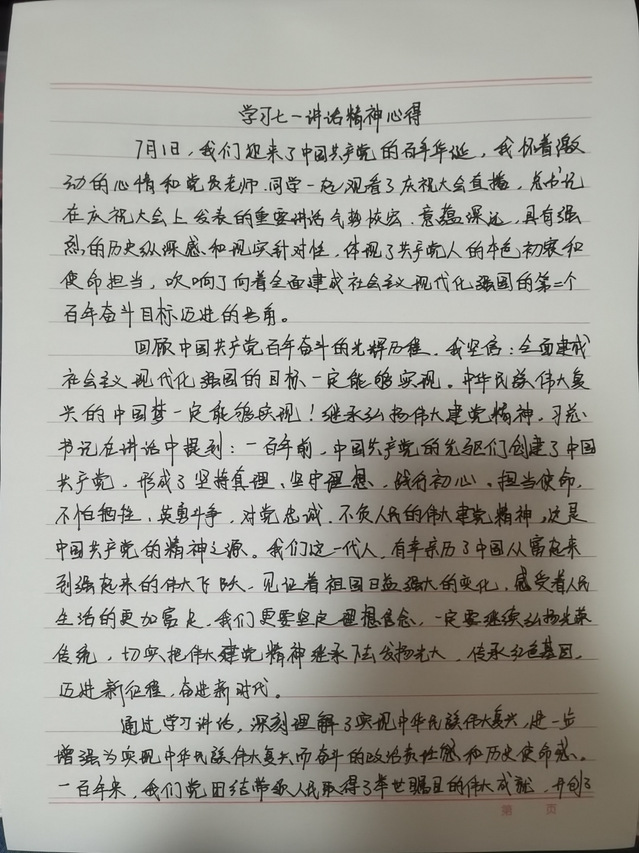 学习七一讲话精神心得
7月1日,我们迎来了中国共产党的百年华诞,我怀着激
动的心情和党员老师、同学一起观看了庆祝大会直播,总书记
在庆祝大会上发表的重要讲话气势恢宏、意蕴深远,具有强
烈的历史纵深感和现实针对性,体现了共产党人的本色初衷和
使命担当,吹响了向着全面建成社会主义现代化强国的第二个
百年奋斗目标迈进的号角。
回顾中国共产党百年奋斗的光辉历程,我坚信:全面建成
社会主义现代化强国的目标一定能够实现。中华民族伟大复
兴的中国梦一定能够实现!继承弘扬伟大建党精神,习总
书记在讲话中提到:一百年前,中国共产党的先驱们创建了中国
共产党,形成了坚持真理、坚守理想,践行初心、担当使命,
不怕牺牲、英勇斗争,对党忠诚、不负人民的伟大建党精神,这是
中国共产党的精神之源。我们这一代人,有幸亲历了中国从富起来
到强起来的伟大飞跃,见证着祖国日益强大的变化,感受着人民
生活的更加富足,我们更要坚定理想信念,一定要继续弘扬光荣
传统,切实把伟大建党精神继承下去发扬光大,传承红色基因,
迈进新征程,奋进新时代。
通过学习讲话,深刻理解了实现中华民族伟大复兴,进一步
增强为实现中华民族伟大复兴而奋斗的政治责任感和历史使命感。
一百年来,我们党团结带领人民取得了举世瞩目的伟大成就,开创了
第 页